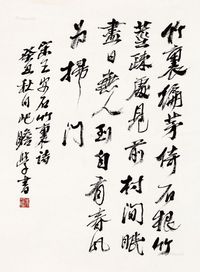 竹裏编茅倚石根竹
莖疎處見前村閒眠
盡日無人到自有春風
為掃門
宋王安石竹裏詩
癸丑秋月
學書